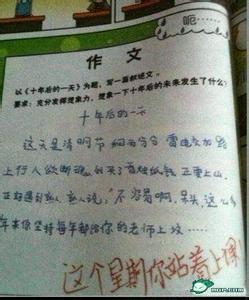 呃……
作 文
以《十年后的一天》为题，写一篇叙述文。
要求：充分发挥想象力，想象一下十年后的未来发生了什么？
十年后的一天
这天是清明节 细雨纷纷 雷电交加 路
上行人欲断魂 我买了首烛纸钱 正要上山
正好遇到熟人 熟人说，"不容易啊，呆头 这么多
年来你坚持每年都给你的老师上坟……
这个星期你站着上课
MOP.COM